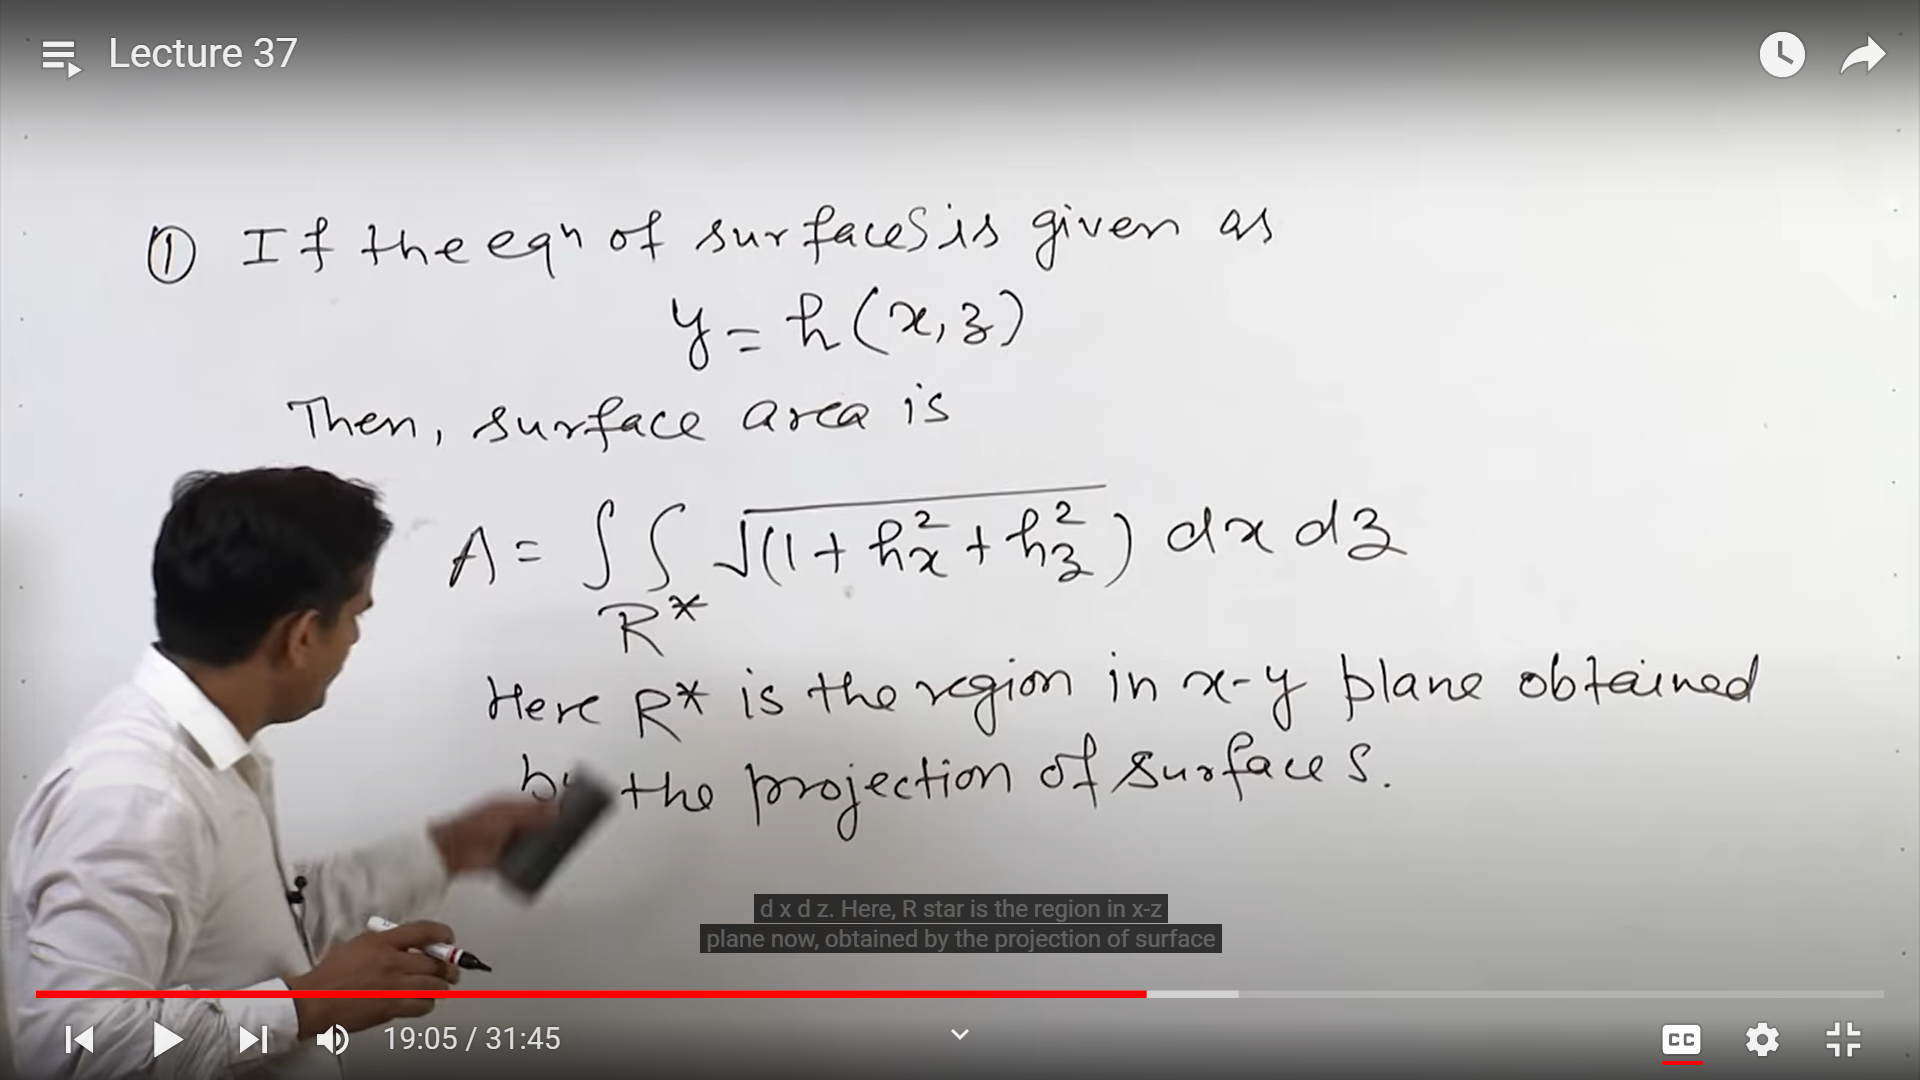 Lecture 37
① If the eqⁿ of surface S is given as
y = h(x, z)
Then, surface area is
A = ∫∫ √(1 + hₓ² + h_z²) dx dz
R*
Here R* is the region in x-y plane obtained
by the projection of surface S.
d x d z. Here, R star is the region in x-z
plane now, obtained by the projection of surface
19:05 / 31:45
CC